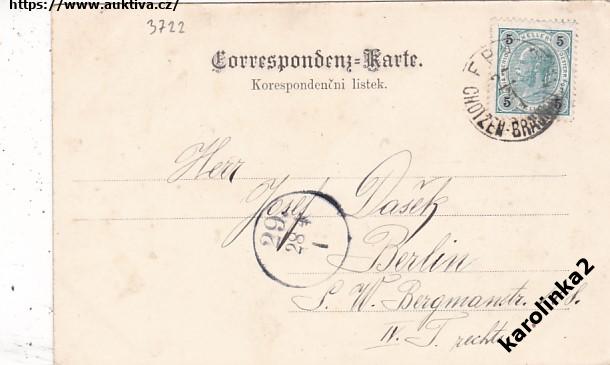 https://www.auktiva.cz/
3722
Correspondenz-Karte.
Korespondenční listek.
5 HELLER 5
5 5
CHOTZEN-BRAUNAU
Herr
Josef Dašek
Berlin
S. W. Bergmanstr.
IV. T. rechts
29
28 4
1
karolinka2